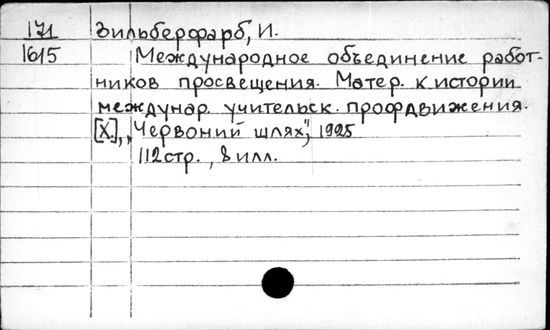 171 Зильберфарб, И.
1615 Международное объединение работ-
ников просвещения. Матер. к истории
междунар. учительск. профдвижения.
[Х.], „Червоний шлях", 1925
112 стр., 8 илл.